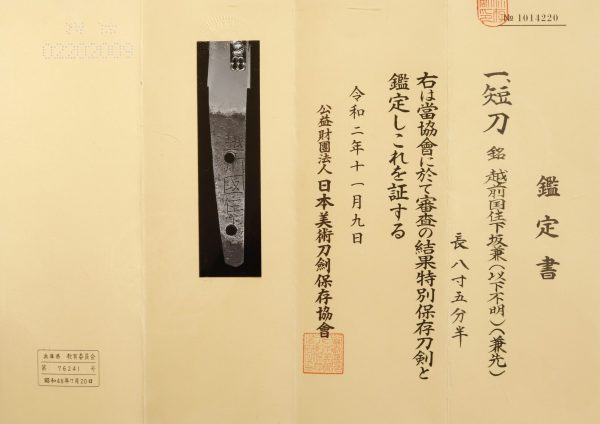 № 1014220
鑑定書
一、短刀 銘 越前国住下坂兼(以下不明)(兼先)
長 八寸五分半
右は當協會に於て審査の結果特別保存刀剣と
鑑定しこれを証する
令和二年十一月九日
公益財團法人 日本美術刀剣保存協會
02202009
兵庫県 教育委員会
第 76241 号
昭和48年7月20日